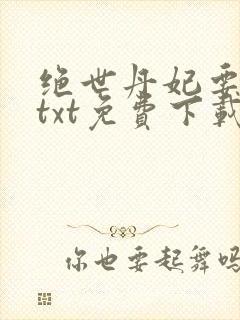 绝世丹妃要
txt免费下载
你也要起舞吗